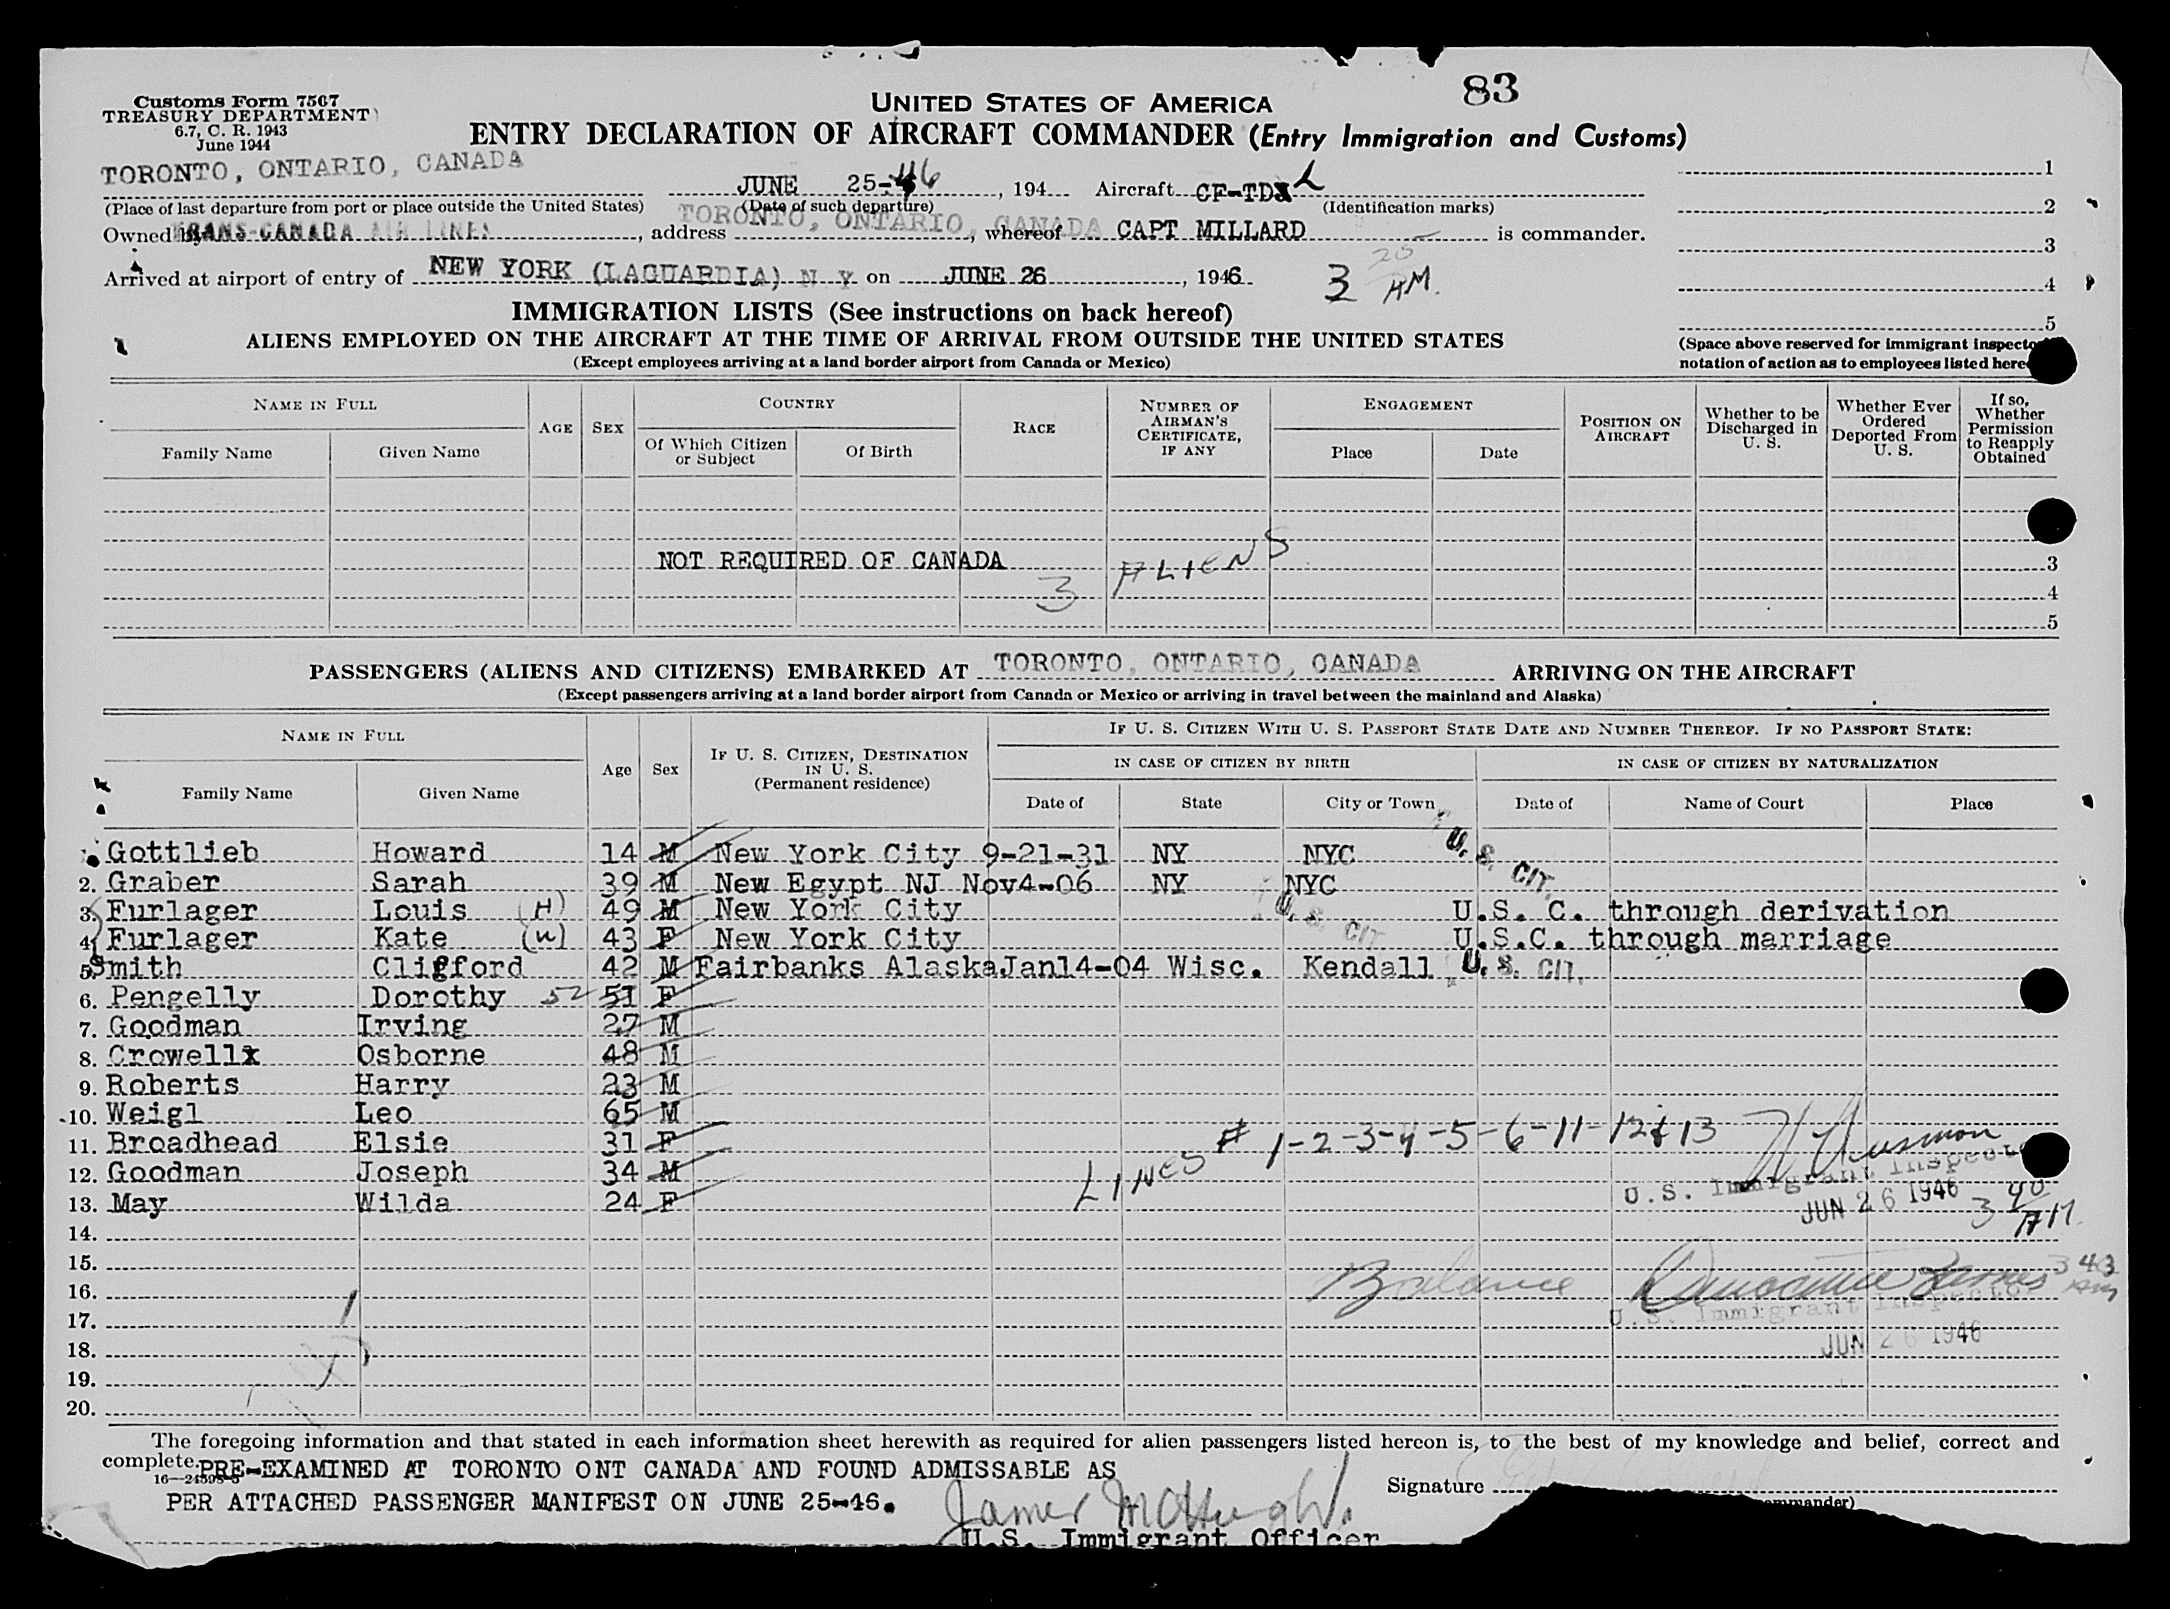 83
Customs Form 7507
TREASURY DEPARTMENT
6.7, C. R. 1943
June 1944
UNITED STATES OF AMERICA
ENTRY DECLARATION OF AIRCRAFT COMMANDER (Entry Immigration and Customs)
TORONTO, ONTARIO, CANADA JUNE 25-46, 194 Aircraft CF-TDL
(Place of last departure from port or place outside the United States) (Date of such departure) (Identification marks)
Owned by TRANS-CANADA AIR LINES, address TORONTO, ONTARIO, CANADA, whereof CAPT MILLARD is commander.
Arrived at airport of entry of NEW YORK (LAGUARDIA) N Y on JUNE 26, 1946 3 20 AM.
1
2
3
4
5
(Space above reserved for immigrant inspector
notation of action as to employees listed here
IMMIGRATION LISTS (See instructions on back hereof)
ALIENS EMPLOYED ON THE AIRCRAFT AT THE TIME OF ARRIVAL FROM OUTSIDE THE UNITED STATES
(Except employees arriving at a land border airport from Canada or Mexico)
NAME IN FULL
Family Name Given Name
AGE SEX
COUNTRY
Of Which Citizen or Subject Of Birth
RACE
NUMBER OF AIRMAN'S CERTIFICATE, IF ANY
ENGAGEMENT
Place Date
POSITION ON AIRCRAFT
Whether to be Discharged in U. S.
Whether Ever Ordered Deported From U. S.
If so, Whether Permission to Reapply Obtained
NOT REQUIRED OF CANADA 3
3 ALIENS 4
5
PASSENGERS (ALIENS AND CITIZENS) EMBARKED AT TORONTO, ONTARIO, CANADA ARRIVING ON THE AIRCRAFT
(Except passengers arriving at a land border airport from Canada or Mexico or arriving in travel between the mainland and Alaska)
NAME IN FULL
Family Name Given Name
Age Sex
IF U. S. CITIZEN, DESTINATION IN U. S.
(Permanent residence)
IF U. S. CITIZEN WITH U. S. PASSPORT STATE DATE AND NUMBER THEREOF. IF NO PASSPORT STATE:
IN CASE OF CITIZEN BY BIRTH IN CASE OF CITIZEN BY NATURALIZATION
Date of State City or Town Date of Name of Court Place
Gottlieb Howard 14 M New York City 9-21-31 NY NYC U. S. CIT.
2. Graber Sarah 39 M New Egypt NJ Nov4-06 NY NYC
3. Furlager Louis (H) 49 M New York City U. S. CIT U.S. C. through derivation
4. Furlager Kate (W) 43 F New York City U.S.C. through marriage
5. Smith Cligford 42 M Fairbanks Alaska Jan14-04 Wisc. Kendall U. S. CIT.
6. Pengelly Dorothy 52 51 F
7. Goodman Irving 27 M
8. Crowellx Osborne 48 M
9. Roberts Harry 23 M
10. Weigl Leo 65 M
11. Broadhead Elsie 31 F
12. Goodman Joseph 34 M
13. May Wilda 24 F
LINES # 1-2-3-4-5-6-11-12 & 13
U.S. Immigrant Inspector
JUN 26 1946 3 40 AM.
14.
15.
16. Balance 3 43 AM
U.S. Immigrant Inspector
JUN 26 1946
17.
18.
19.
20.
The foregoing information and that stated in each information sheet herewith as required for alien passengers listed hereon is, to the best of my knowledge and belief, correct and
complete.
PRE-EXAMINED AT TORONTO ONT CANADA AND FOUND ADMISSABLE AS
PER ATTACHED PASSENGER MANIFEST ON JUNE 25-46.
Signature
James McHugh
U.S. Immigrant Officer